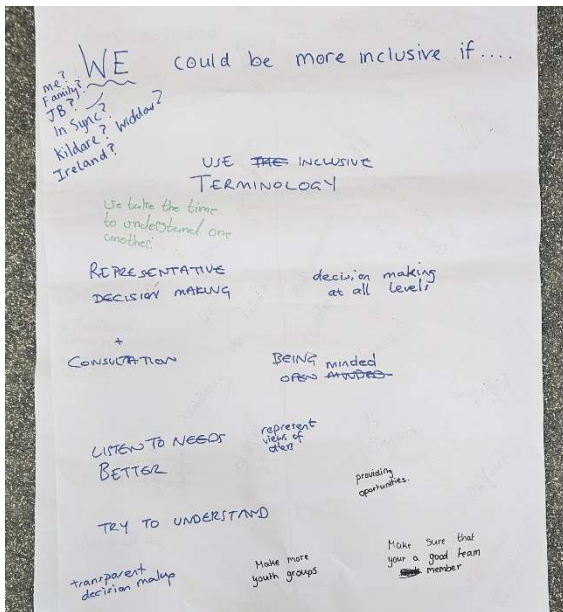 WE could be more inclusive if....
me?
Family?
JB?
In Sync?
Kildare? Wicklow?
Ireland?
USE THE INCLUSIVE
TERMINOLOGY
We take the time
to understand one
another.
REPRESENTATIVE
DECISION MAKING
decision making
at all levels
+
CONSULTATION
BEING minded
OPEN MINDED
LISTEN TO NEEDS
BETTER
represent
views of
others
providing
oportunities.
TRY TO UNDERSTAND
transparent
decision makup
Make more
youth groups
Make Sure that
your a good team
member